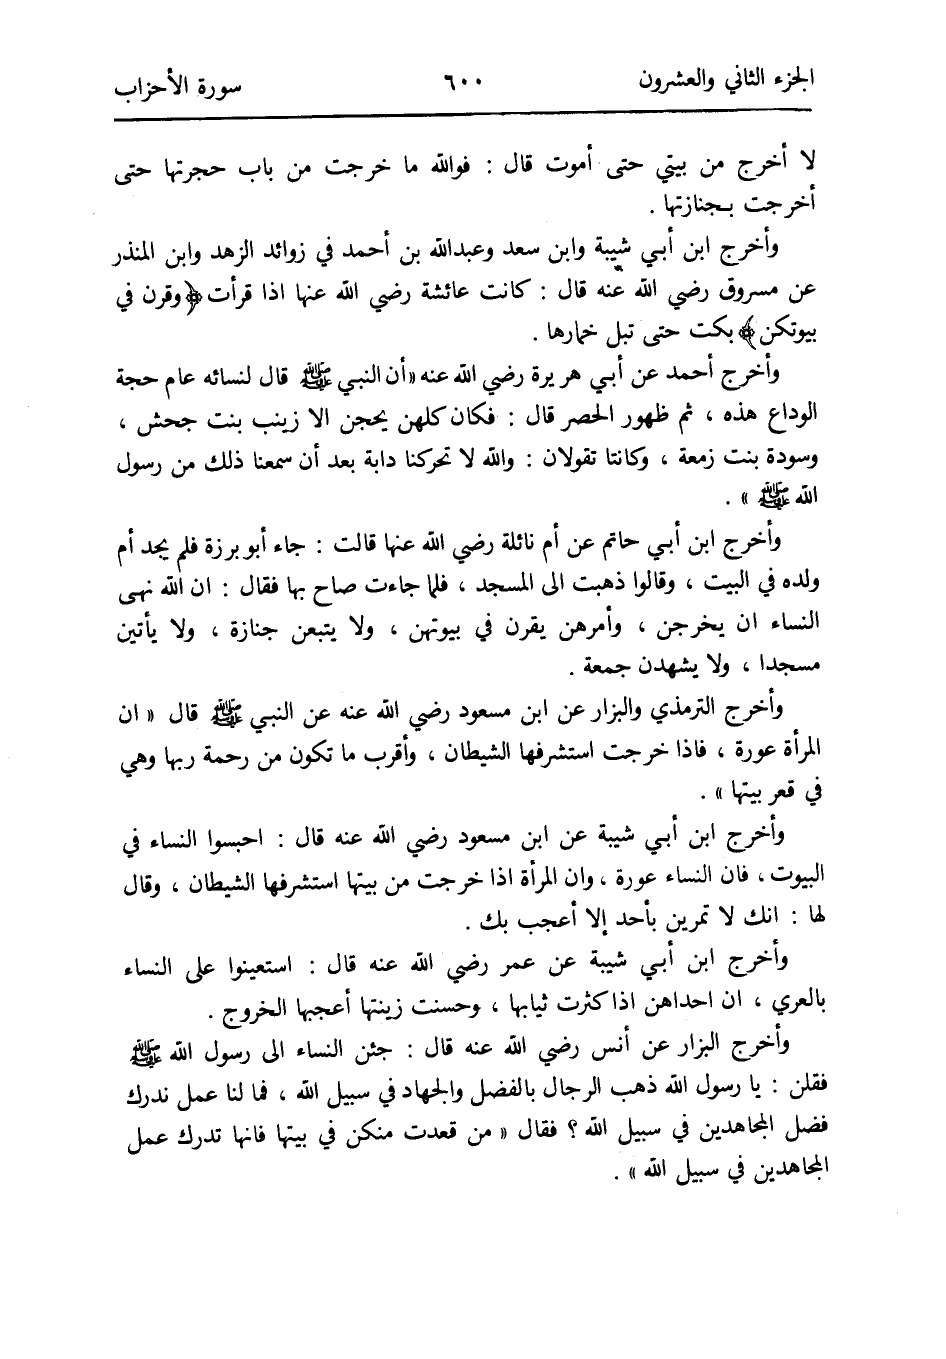 الجزء الثاني والعشرون ٦٠٠ سورة الأحزاب
لا أخرج من بيتي حتى أموت قال : فوالله ما خرجت من باب حجرتها حتى
أخرجت بجنازتها .
وأخرج ابن أبي شيبة وابن سعد وعبدالله بن أحمد في زوائد الزهد وابن المنذر
عن مسروق رضي الله عنه قال : كانت عائشة رضي الله عنها اذا قرأت ﴿وقرن في
بيوتكن﴾ بكت حتى تبل خمارها .
وأخرج أحمد عن أبي هريرة رضي الله عنه «أن النبي ﷺ قال لنسائه عام حجة
الوداع هذه ، ثم ظهور الحصر قال : فكان كلهن يحجن الا زينب بنت جحش ،
وسودة بنت زمعة ، وكانتا تقولان : والله لا تحركنا دابة بعد أن سمعنا ذلك من رسول
الله ﷺ » .
وأخرج ابن أبي حاتم عن أم نائلة رضي الله عنها قالت : جاء أبو برزة فلم يجد أم
ولده في البيت ، وقالوا ذهبت الى المسجد ، فلما جاءت صاح بها فقال : ان الله نهى
النساء ان يخرجن ، وأمرهن يقرن في بيوتهن ، ولا يتبعن جنازة ، ولا يأتين
مسجدا ، ولا يشهدن جمعة .
وأخرج الترمذي والبزار عن ابن مسعود رضي الله عنه عن النبي ﷺ قال « ان
المرأة عورة ، فاذا خرجت استشرفها الشيطان ، وأقرب ما تكون من رحمة ربها وهي
في قعر بيتها » .
وأخرج ابن أبي شيبة عن ابن مسعود رضي الله عنه قال : احبسوا النساء في
البيوت ، فان النساء عورة ، وان المرأة اذا خرجت من بيتها استشرفها الشيطان ، وقال
لها : انك لا تمرين بأحد إلا أعجب بك .
وأخرج ابن أبي شيبة عن عمر رضي الله عنه قال : استعينوا على النساء
بالعري ، ان احداهن اذا كثرت ثيابها ، وحسنت زينتها أعجبها الخروج .
وأخرج البزار عن أنس رضي الله عنه قال : جئن النساء الى رسول الله ﷺ
فقلن : يا رسول الله ذهب الرجال بالفضل والجهاد في سبيل الله ، فما لنا عمل ندرك
فضل المجاهدين في سبيل الله ؟ فقال « من قعدت منكن في بيتها فانها تدرك عمل
المجاهدين في سبيل الله » .